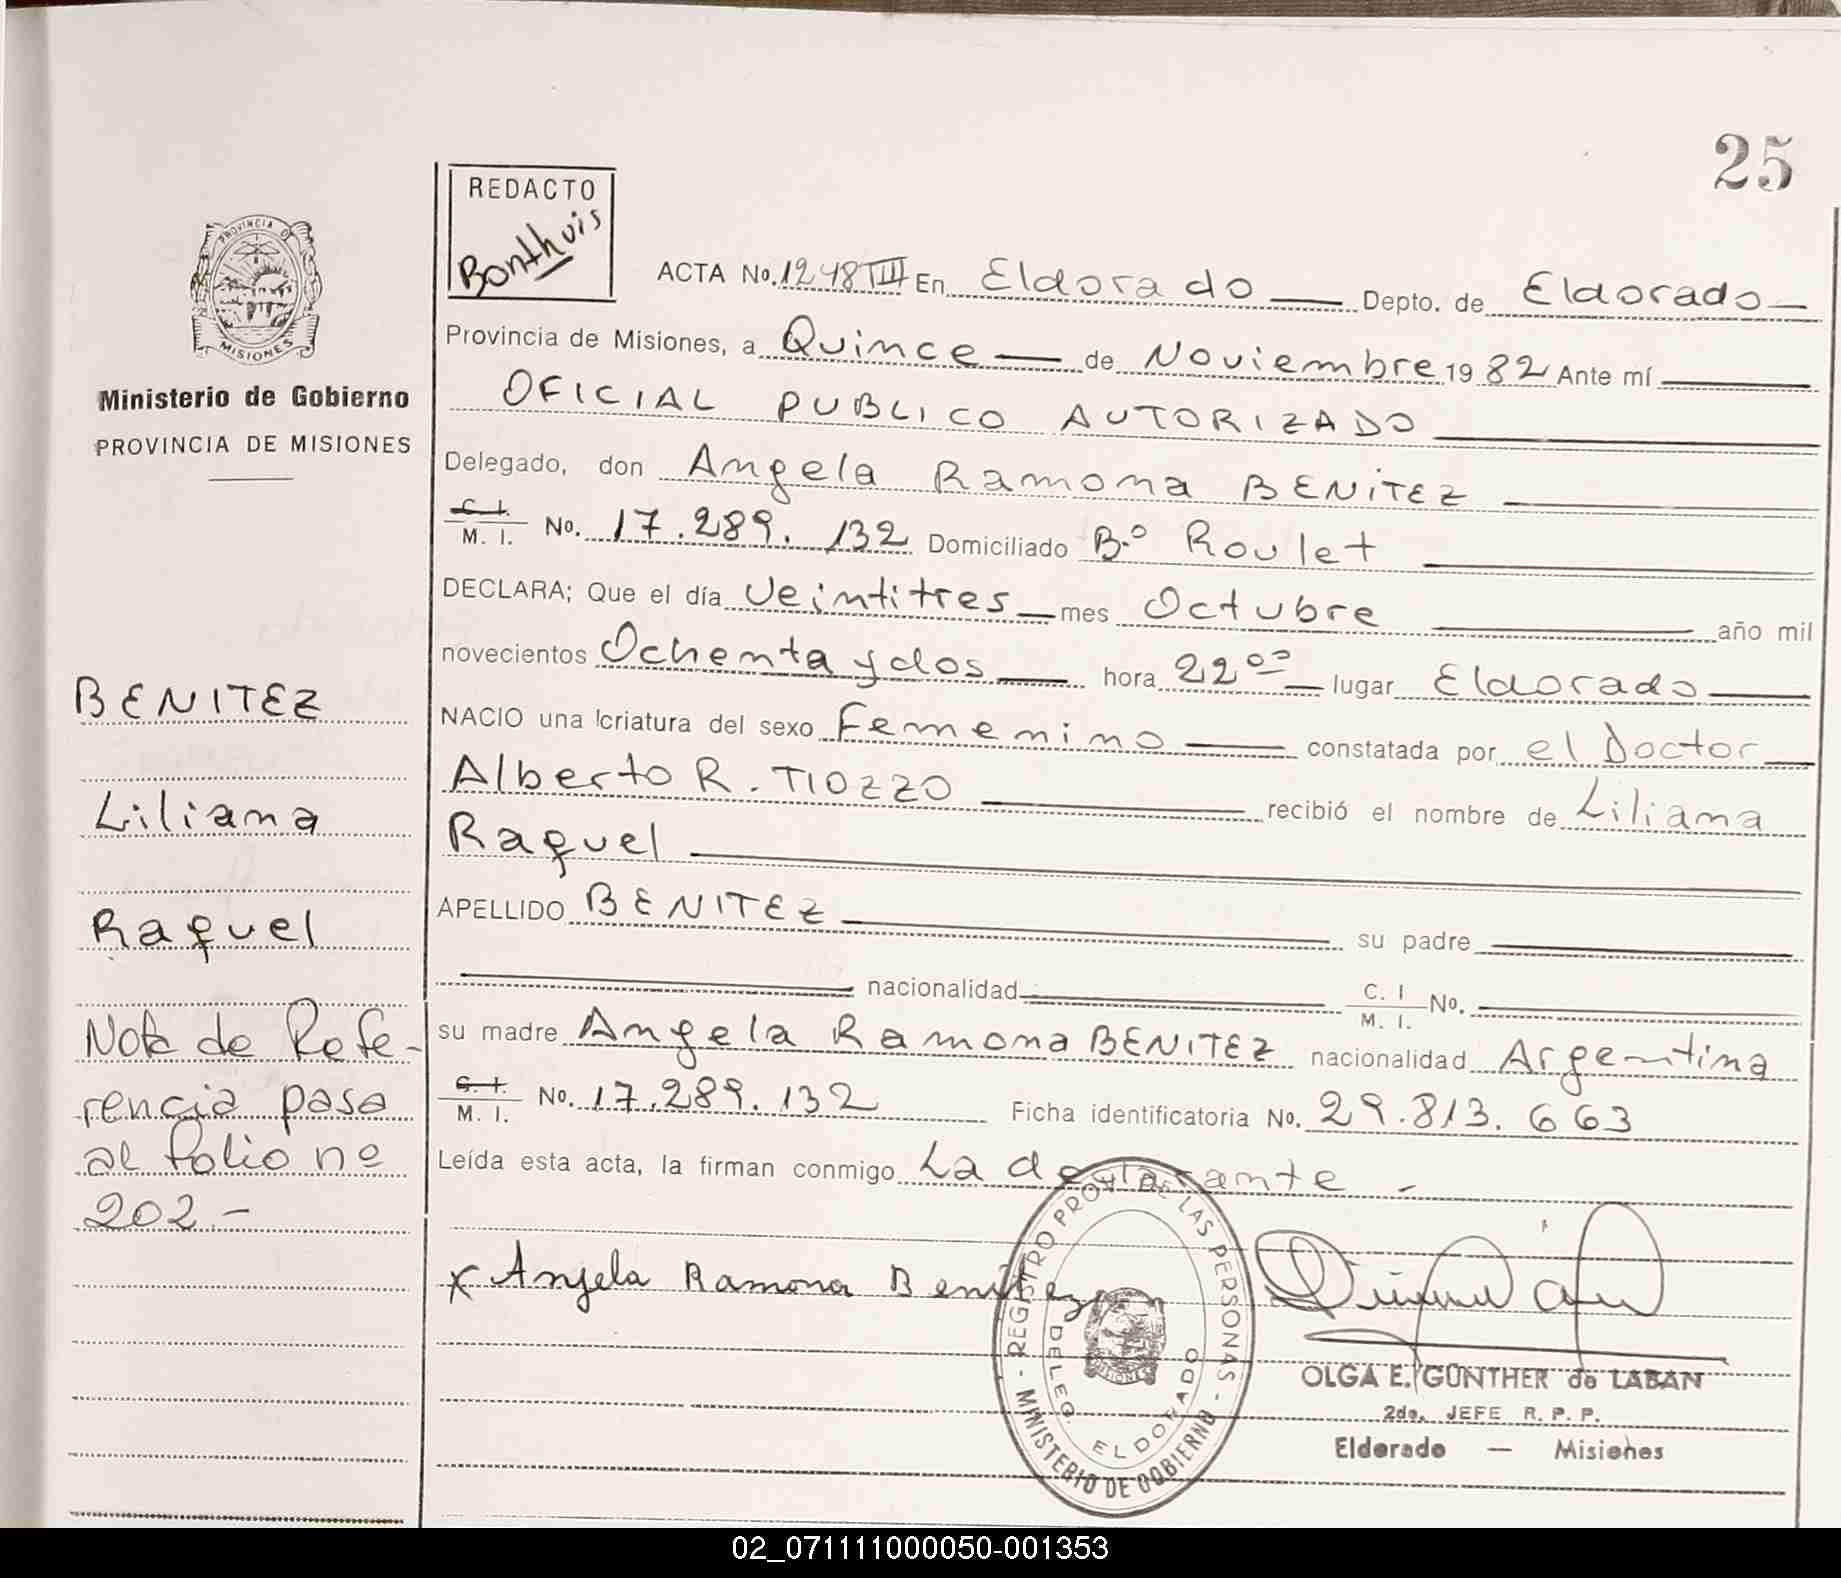 25
REDACTO
Bonthuis
PROVINCIA DE
MISIONES
Ministerio de Gobierno
PROVINCIA DE MISIONES
ACTA No. 1248 TIII En Eldorado Depto. de Eldorado
Provincia de Misiones, a Quince de Noviembre 1982 Ante mí
OFICIAL PUBLICO AUTORIZADO
Delegado, don Angela Ramona BENITEZ
C. I. M. I. No. 17.289.132 Domiciliado B.º Roulet
DECLARA; Que el día Veintitres mes Octubre año mil
novecientos Ochenta y dos hora 22 00 lugar Eldorado
NACIO una criatura del sexo Femenino constatada por el Doctor
Alberto R. TIOZZO recibió el nombre de Liliana
Raquel
APELLIDO BENITEZ su padre
nacionalidad C. I M. I. No.
su madre Angela Ramona BENITEZ nacionalidad Argentina
C. I. M. I. No. 17.289.132 Ficha identificatoria No. 29.813.663
Leída esta acta, la firman conmigo La declarante -
x Angela Ramona Benitez
BENITEZ
Liliana
Raquel
Nota de Refe-
rencia pasa
al folio nº
202.-
- REGISTRO PROV. DE LAS PERSONAS -
MINISTERIO DE GOBIERNO
DELEG. ELDORADO
OLGA E. GUNTHER de LABAN
2do. JEFE R. P. P.
Eldorado — Misiones
02_071111000050-001353